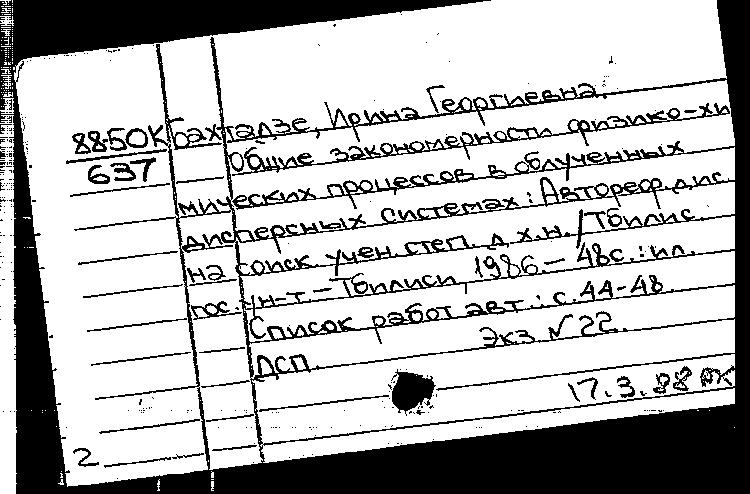 8850К Бахтадзе, Ирина Георгиевна.
637 Общие закономерности физико-хи
мических процессов в облученных
дисперсных системах: Автореф. дис.
на соиск. учен. степ. д. х. н. / Тбилис.
гос. ун-т. – Тбилиси, 1986. – 48с.: ил.
Список работ авт.: с. 44-48.
ДСП. Экз № 22.
17.3.88
2